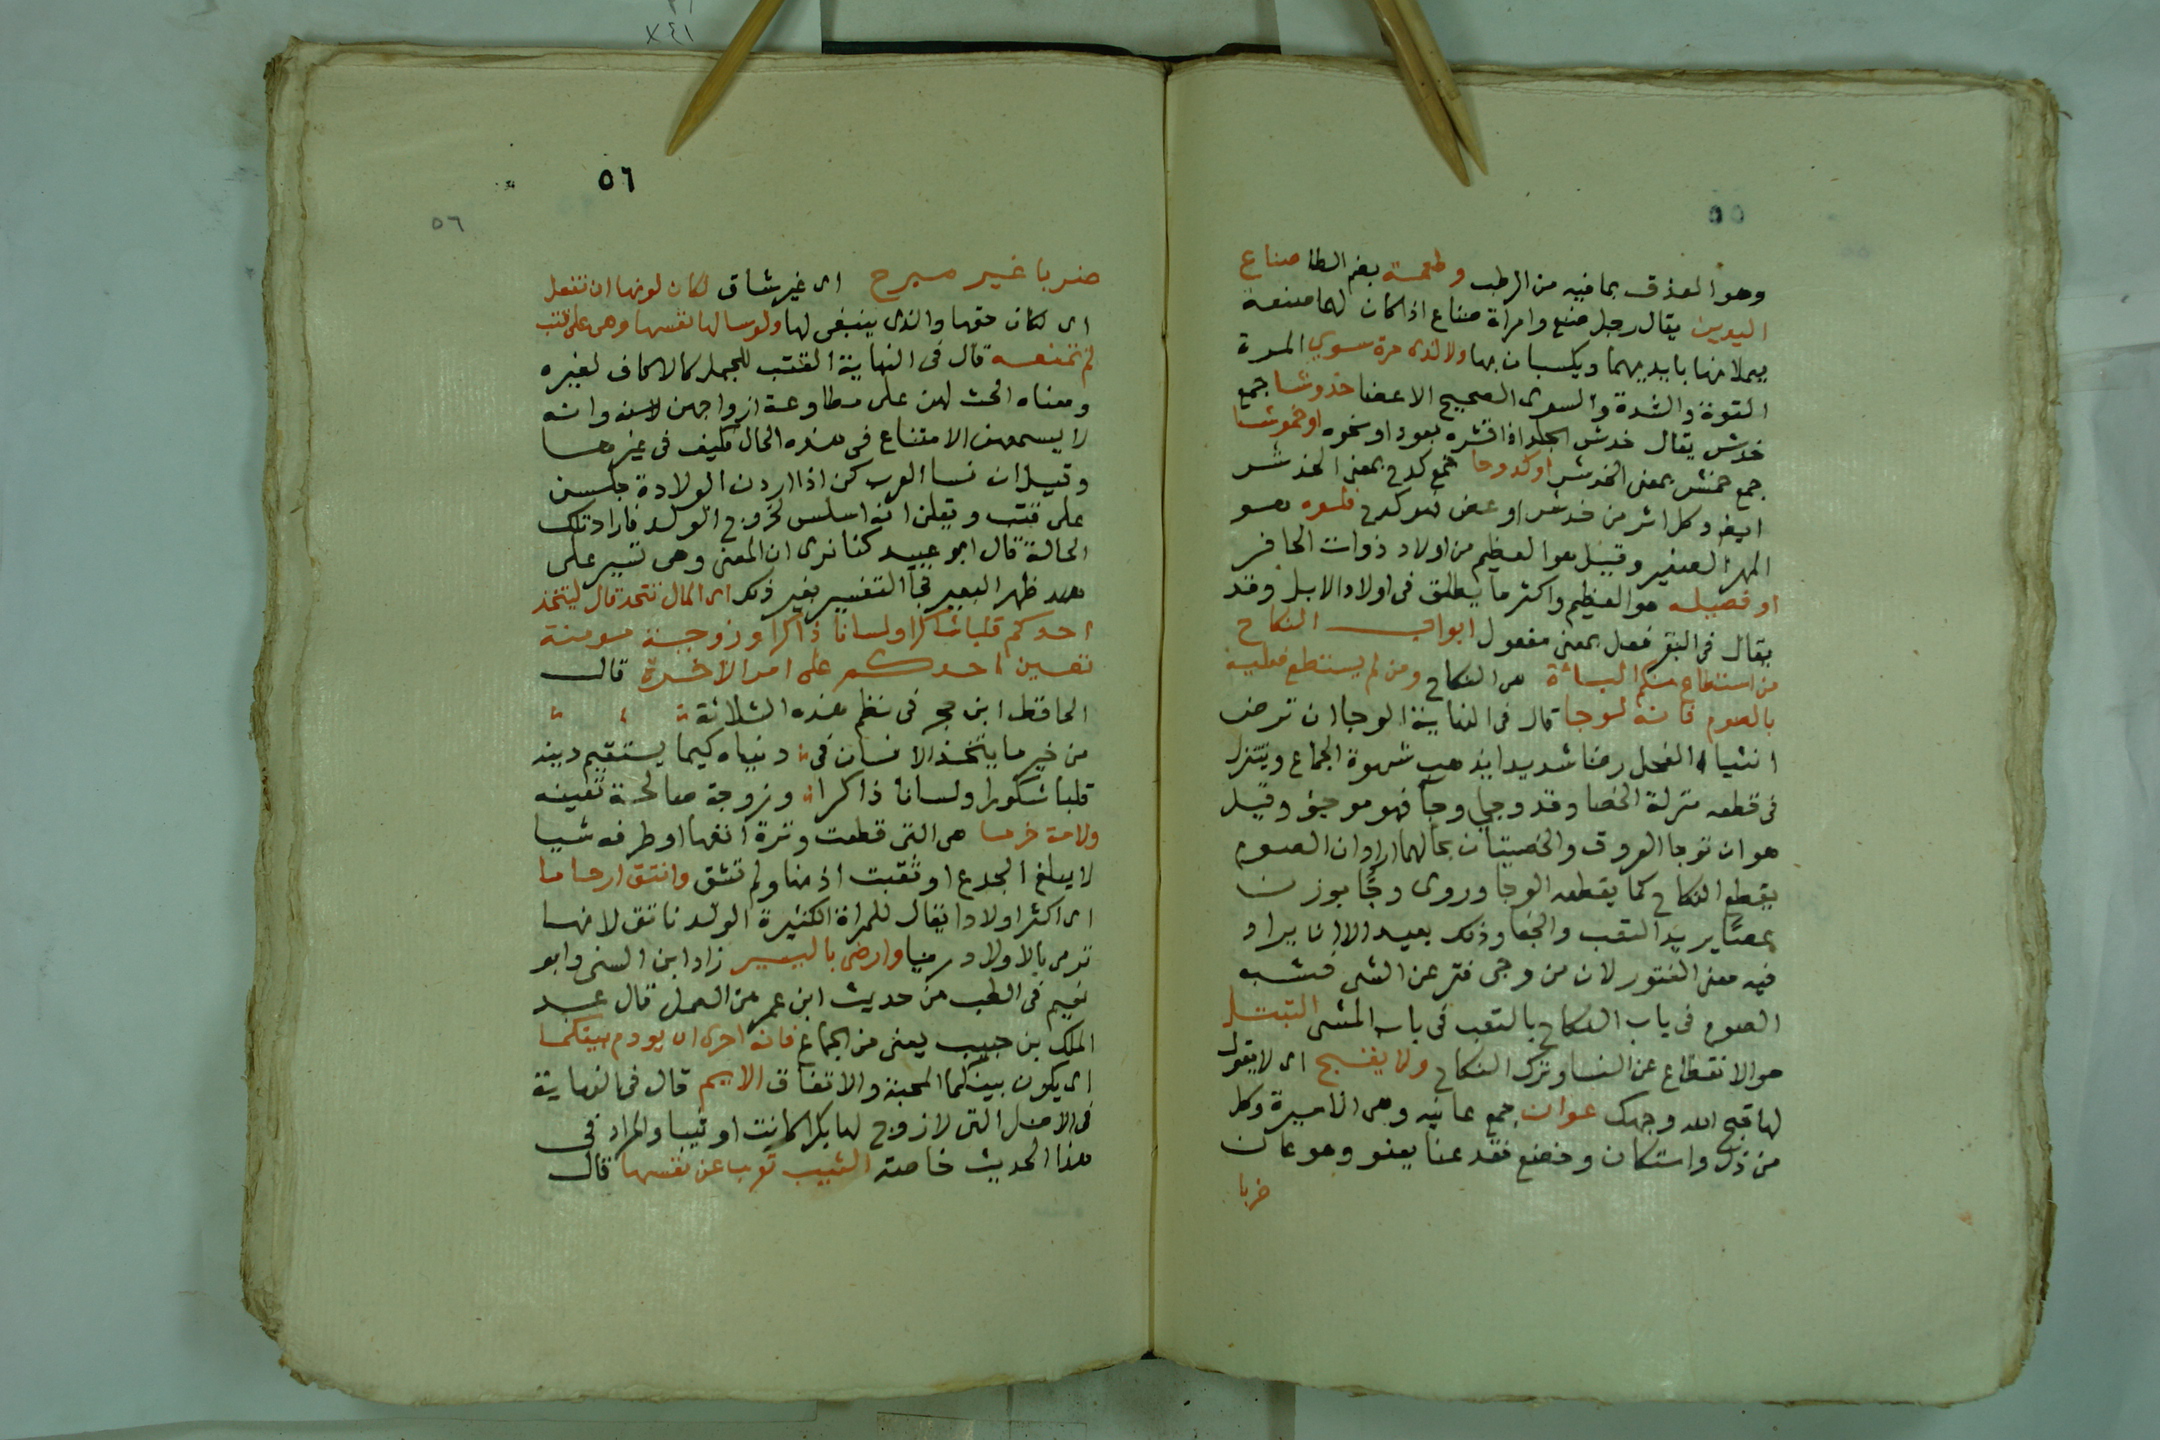 ٥٥
وهو العذق بما فيه من الرطب وطعمة بضم الطا صناع
اليدين يقال رجل صنع وامراة صناع اذا كان لهما صنعة
يعملانها بايديهما ويكسبان بها ولا لذى مرة سوي المرة
القوة والشدة والسوى الصحيح الاعضا خدوشا جمع
خدش يقال خدش الجلد اذا قشره بعود او نحوه او خموشا
جمع خمش بمعنى الخدش او كدوحا جمع كدح بمعنى الخدش
ايضا وكل اثر من خدش او عض فهو كدح فلوه هو
المهر الصغير وقيل هو العظيم من اولاد ذوات الحافر
او فصيله هو العظيم واكثر ما يطلق في اولاد الابل وقد
يقال في البقر فعيل بمعنى مفعول ابواب النكاح
من استطاع منكم الباءة هى النكاح ومن لم يستطع فعليه
بالصوم فانه له وجا قال فى النهاية الوجا ان ترض
انثيا الفحل رضا شديدا يذهب شهوة الجماع ويتنزل
فى قطعه منزلة الخصا وقد وجي وجأ فهو موجؤ وقيل
هو ان توجا العروق والخصيتان بحالهما اراد ان الصوم
يقطع النكاح كما يقطعه الوجا وروى وجًا بوزن
عصًا يريد التعب والجفا وذلك بعيد الا ان يراد
فيه معنى الفتور لان من وجى فتر عن المشى فشبه
الصوم فى باب النكاح بالتعب فى باب المشى التبتل
هو الانقطاع عن النسا وترك النكاح ولا يقبح اى لا يقول
لها قبح الله وجهك عوان جمع عانيه وهى الاسيرة وكل
من ذل واستكان وخضع فقد عنا يعنو وهو عان
ضربا
٥٦
٥٦
ضربا غير مبرح اى غير شاق لكان لونها ان تفعل
اى لكان حقها والذى ينبغى لها ولو سالها نفسها وهى على قتب
لم تمنعه قال فى النهاية القتب للجمل كالاكاف لغيره
ومعناه الحث لهن على مطاوعة ازواجهن وانه
لا يسعهن الامتناع فى هذه الحال فكيف فى غيرها
وقيل ان نسا العرب كن اذا اردن الولادة جلسن
على قتب ويقلن انه اسلس لخروج الولد فاراد تلك
الحالة قال ابو عبيد كنا نرى ان المعنى وهى تسير على
ظهر البعير فجآ التفسير بغير ذلك اى المال نتخذ قال ليتخذ
احدكم قلبا شاكرا ولسانا ذاكرا وزوجة مومنة
تعين احدكم على امر الاخرة قال
الحافظ ابن حجر فى نظم هذه الثلاثة
من خير ما يتخذ الانسان فى دنياه كيما يستقيم دينه
قلبا شكورا ولسانا ذاكرا وزوجة صالحة تعينه
ولامة خرما هى التى قطعت وترة انفها او طرفه شيا
لا يبلغ الجدع او ثقبت اذنها ولم تشق وانتق ارحاما
اى اكثر اولادا يقال للمراة الكثيرة الولد ناتق لانها
ترمى بالاولاد رميا وارضى باليسير زاد ابن السنى وابو
نعيم فى الطب من حديث ابن عمر من العمل قال عبد
الملك بن حبيب يعنى من الجماع فانه احرى ان يودم بينكما
اى يكون بينكما المحبة والاتفاق الايم قال فى النهاية
فى الاصل التى لا زوج لها بكرا كانت او ثيبا والمراد فى
هذا الحديث خاصة الثيب تعرب عن نفسها قال